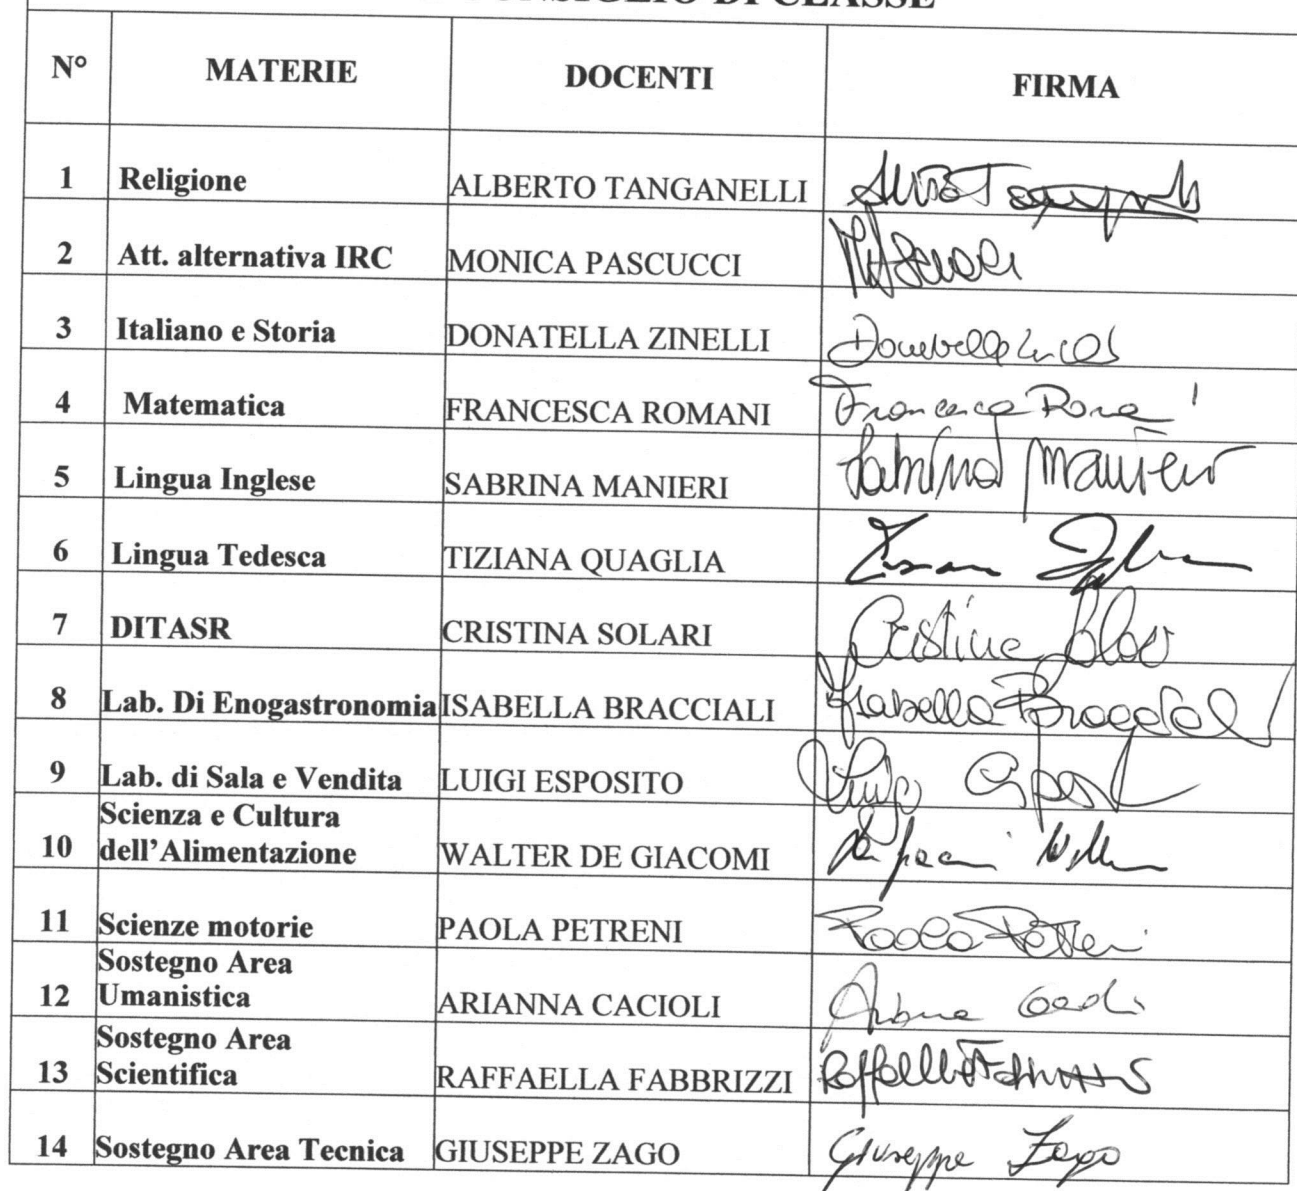 DI CLASSE
N° MATERIE DOCENTI FIRMA
1 Religione ALBERTO TANGANELLI
2 Att. alternativa IRC MONICA PASCUCCI
3 Italiano e Storia DONATELLA ZINELLI
4 Matematica FRANCESCA ROMANI Francesca
5 Lingua Inglese SABRINA MANIERI Sabrina Manieri
6 Lingua Tedesca TIZIANA QUAGLIA
7 DITASR CRISTINA SOLARI Cristina
8 Lab. Di Enogastronomia ISABELLA BRACCIALI Isabella
9 Lab. di Sala e Vendita LUIGI ESPOSITO Luigi
Scienza e Cultura
10 dell'Alimentazione WALTER DE GIACOMI
11 Scienze motorie PAOLA PETRENI Paola
Sostegno Area
12 Umanistica ARIANNA CACIOLI
Sostegno Area
13 Scientifica RAFFAELLA FABBRIZZI
14 Sostegno Area Tecnica GIUSEPPE ZAGO Giuseppe Zago